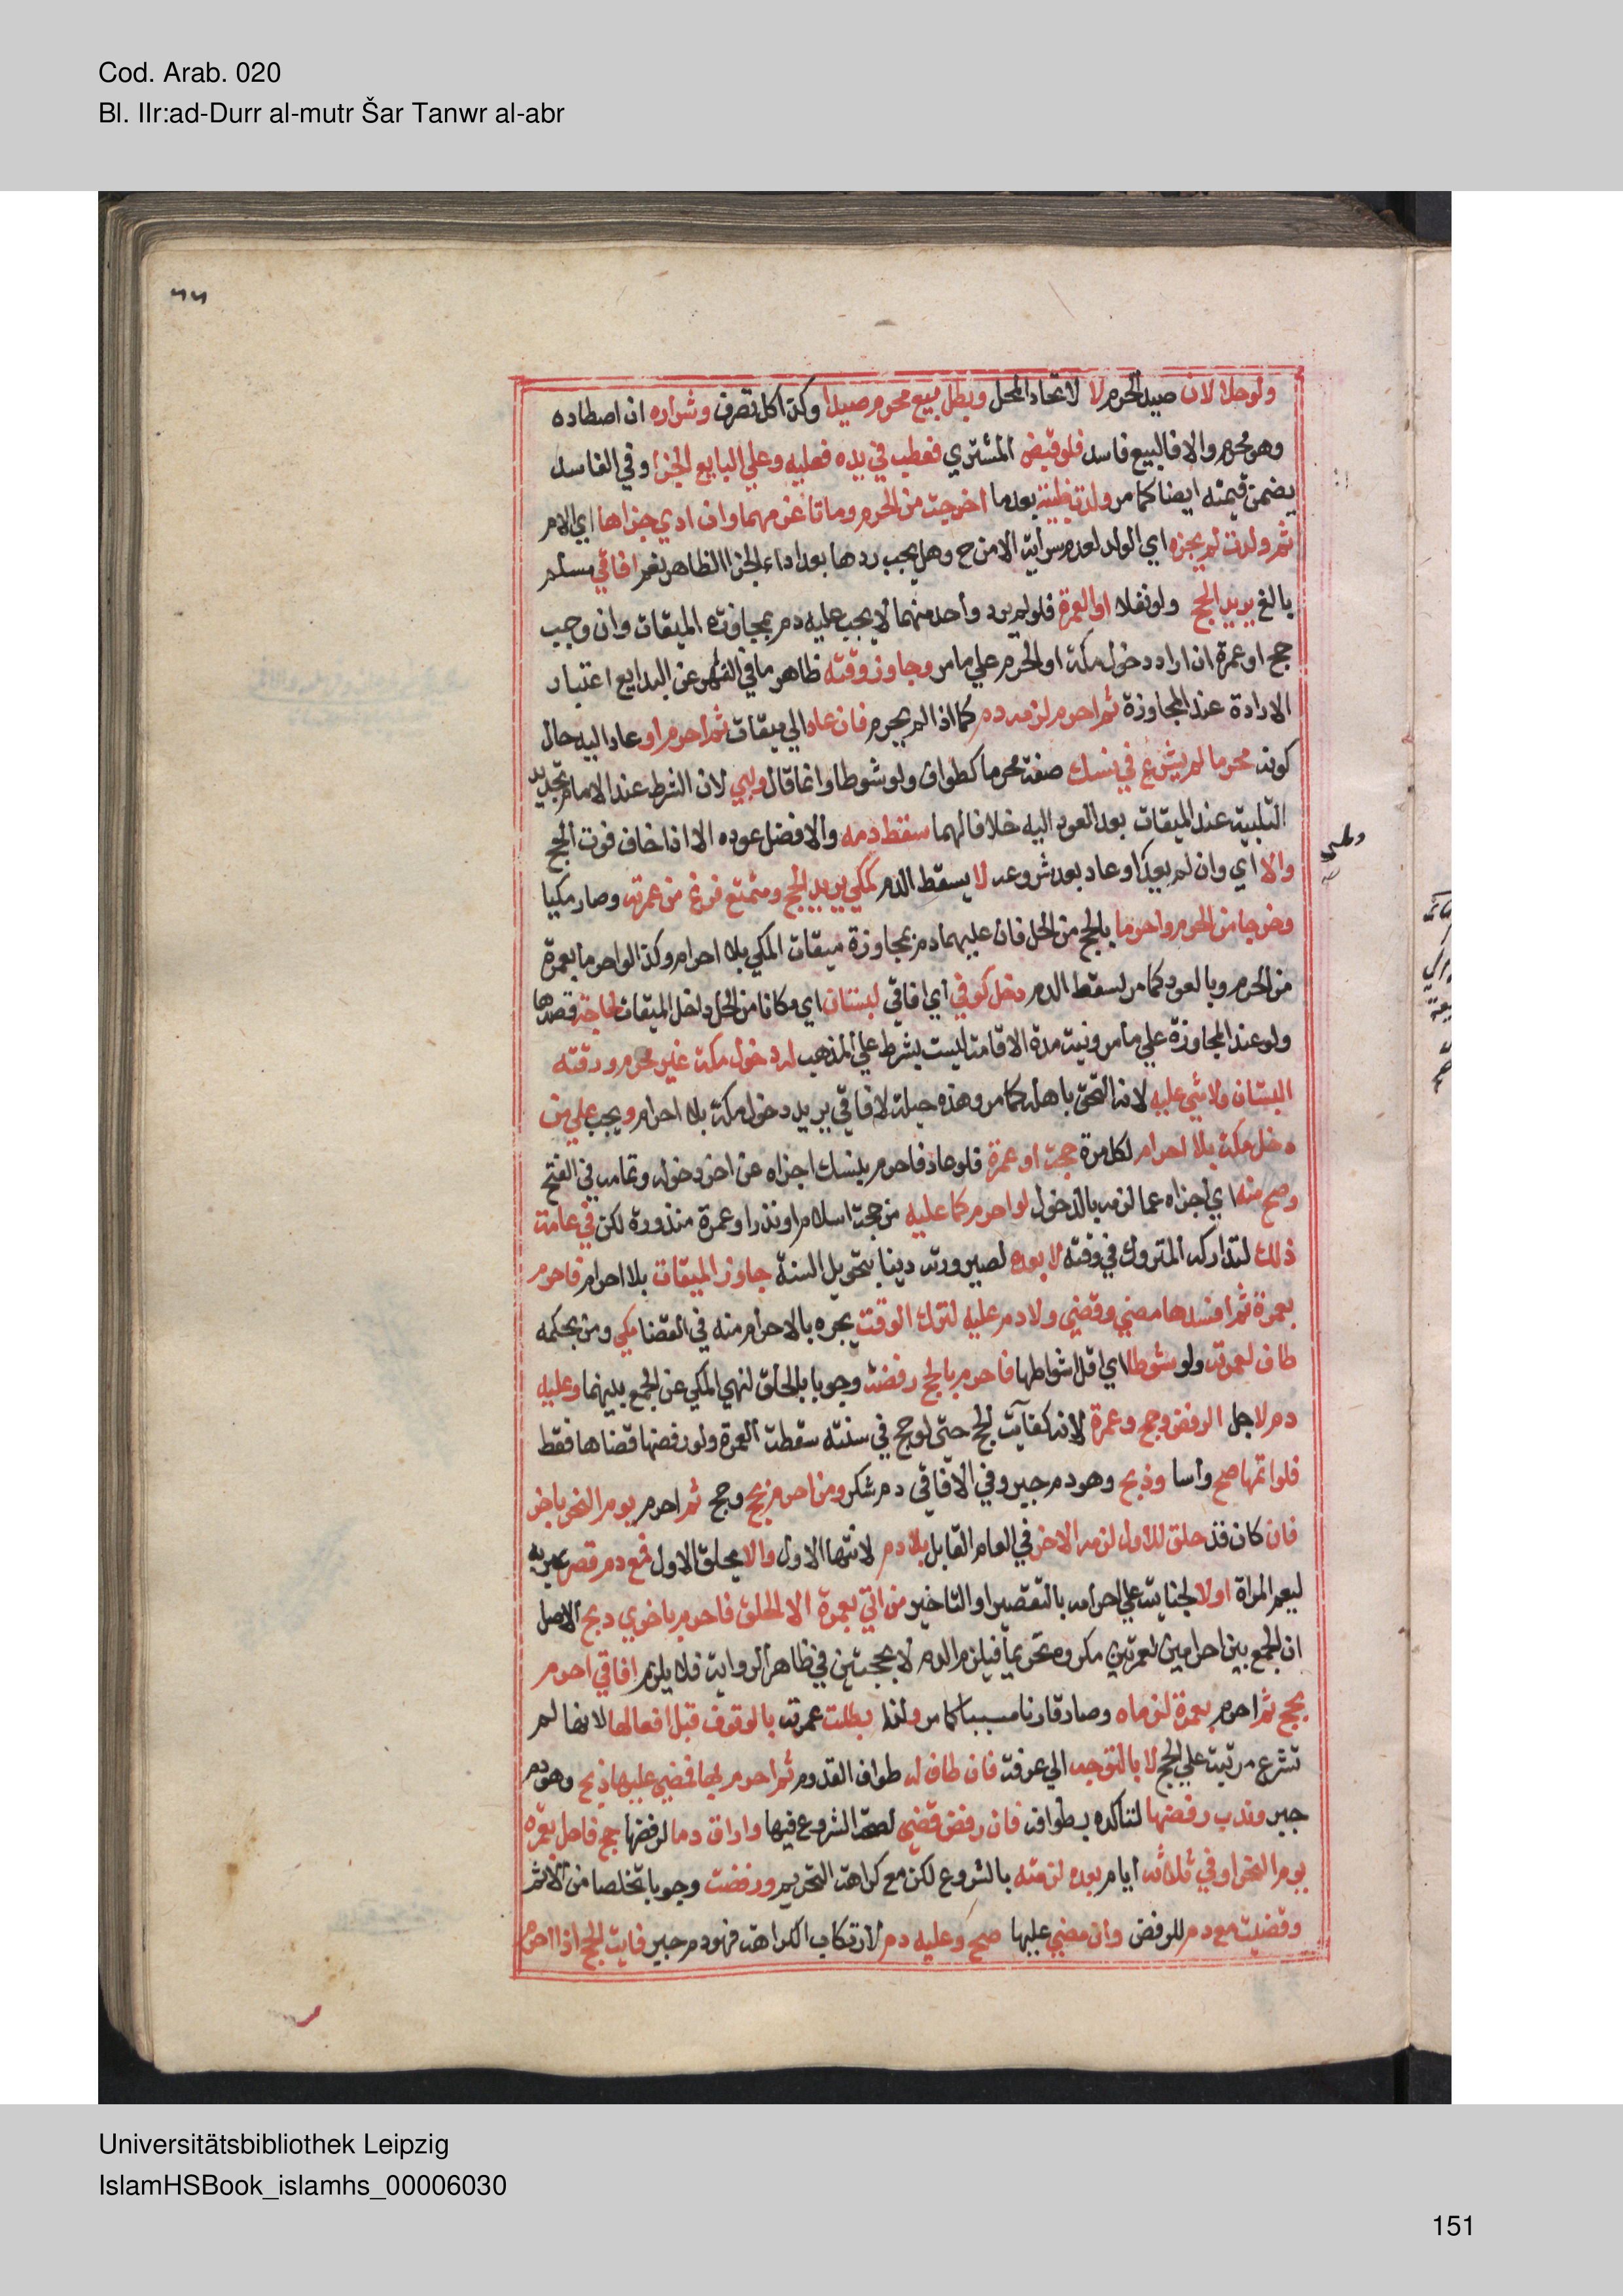 Cod. Arab. 020
Bl. IIr:ad-Durr al-mutr Šar Tanwr al-abr
٦٦
ولو حلالان صيد الحرم لا لاتحاد المحل وبطل بيع محرم صيدا وكذا كل تصرف وشراره ان اصطاده
وهو محرم والا فالبيع فاسد فلو قبض المشتري فعطب في يده فعليه وعلي البايع الجزا وفي الفاسد
يضمن قيمته ايضا كما مر ولدت ظبية بعد ما اخرجت من الحرم وماتا غرمهما وان ادي جزاها اي الام
ثم ولدت لم يجزه اي الولد لعدم سراية الامن ح وهل يجب ردها بعد اداء الجزا الظاهر نعم افاقي مسلم
بالغ يريد الحج ولو نفلا او العمرة فلو لم يرد واحد منهما لا يجب عليه دم بمجاوزة الميقات وان وجب
حج او عمرة ان اراد دخول مكة او الحرم علي ما مر وجاوز وقته ظاهر ما في النهر عن البدايع اعتبار
الارادة عند المجاوزة ثم احرم لزمه دم كما اذا لم يحرم فان عاد الي ميقات ثم احرم او عاد اليه حال
كونه محرما لم يشرع في نسك صفة محرما كطواف ولو شوطا وانما قال ولبي لان الشرط عند الامام تجديد
التلبية عند الميقات بعد العود اليه خلافا لهما سقط دمه والافضل عوده الا اذا خاف فوت الحج
والا اي وان لم يعد او عاد بعد شروعه لا يسقط الدم كمكي يريد الحج ومتمتع فرغ من عمرته وصار مكيا
وخرجا من الحرم واحرما بالحج من الحل فان عليهما دم بمجاوزة ميقات المكي بلا احرام وكذا لو احرما بعمرة
من الحرم وبالعود كما مر يسقط الدم دخل كوفي اي افاقي لبستان اي مكانا من الحل داخل الميقات لحاجة قصدها
ولو عند المجاوزة علي ما مر ونية مدة الاقامة ليست بشرط علي المذهب له دخول مكة غير محرم ووقته
البستان ولا شي عليه لانه التحق باهله كما مر وهذه حيلة لافاقي يريد دخول مكة بلا احرام ويجب علي من
دخل مكة بلا احرام لكل مرة حجة او عمرة فلو عاد فاحرم بنسك اجزاه عن اخر دخوله وتمامه في الفتح
وصح منه اي اجزاه عما لزمه بالدخول لو احرم كما عليه من حجة اسلام او نذر او عمرة منذورة لكن في عامه
ذلك لتداركه المتروك في وقته لا بعده لصيرورته دينا بتحويل السنة جاوز الميقات بلا احرام فاحرم
بعمرة ثم افسدها مضي وقضي ولا دم عليه لترك الوقت يجبره بالاحرام منه في القضا مكي ومن بحكمه
طاف لعمرته ولو شوطا اي اقل اشواطها فاحرم بالحج رفضه وجوبا بالحلق لنهي المكي عن الجمع بينهما وعليه
دم لاجل الرفض وحج وعمرة لانه كفايت الحج حتي لو حج في سنته سقطت العمرة ولو رفضها قضاها فقط
فلو اتمها صح واسا وذبح وهو دم جبر وفي الافاقي دم شكر ومن احرم بحج وحج ثم احرم يوم النحر باخر
فان كان قد حلق للاول لزمه الاخر في العام القابل بلا دم لانتهاء الاول والا يحلق الاول فمع دم قصر عبر به
ليعم المراة او لا لجنايته علي احرامه بالتقصير او التاخير من اتي بعمرة الا الحلق فاحرم باخري ذبح الاصل
ان الجمع بين احرامين لعمرتين مكروه تحريما فيلزم الدم لا بحجتين في ظاهر الرواية فلا يلزم افاقي احرم
بحج ثم احرم بعمرة لزماه وصار قارنا مسيا كما مر ولذا بطلت عمرته بالوقوف قبل افعالها لانها لم
تشرع مرتبة علي الحج لا بالتوجه الي عرفة فان طاف له طواف القدوم ثم احرم بها فمضي عليها ذبح وهو دم
جبر وندب رفضها لتاكده بطوافه فان رفض قضي لصحة الشروع فيها واراق دما لرفضها حج فاهل بعمرة
يوم النحر او في ثلاثة ايام بعده لزمته بالشروع لكن مع كراهة التحريم ورفضت وجوبا تخلصا من الاثم
وقضيت مع دم للرفض وان مضي عليها صح وعليه دم لارتكاب الكراهة فهو دم جبر فايت الحج اذا احرم
Universitätsbibliothek Leipzig
IslamHSBook_islamhs_00006030
151